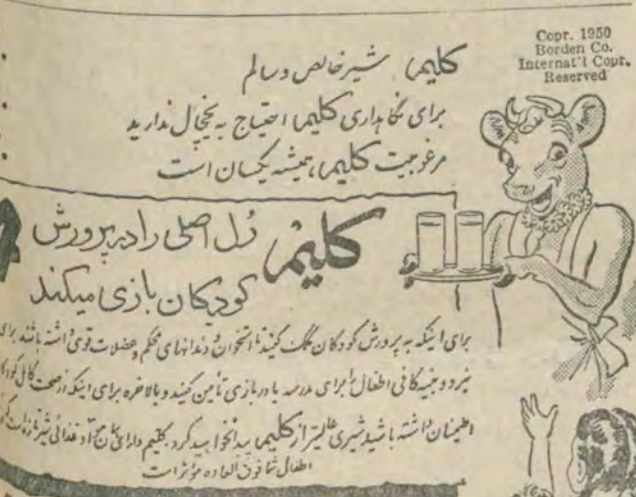 Copr. 1950
Borden Co.
Internat'l Copr.
Reserved
کلیم، شیر خالص و سالم
برای نگاهداری کلیم، احتیاج به یخچال ندارید
مرغوبیت کلیم، همیشه یکسان است
کلیم، رل اصلی را در پرورش
کودکان بازی میکند
برای اینکه به پرورش کودکان کمک کنید تا استخوان و دندانهای محکم و عضلات قوی داشته باشند برای
نیرو و بنیه کافی اطفال را برای مدرسه یا در بازی تأمین کنید و بالاخره برای اینکه از صحت کامل
اطمینان داشته باشید شیری عالیتر از کلیم پیدا نخواهید کرد. کلیم دارای همان مواد غذائی شیر تازه است
اطفال شما فوق العاده مؤثر است